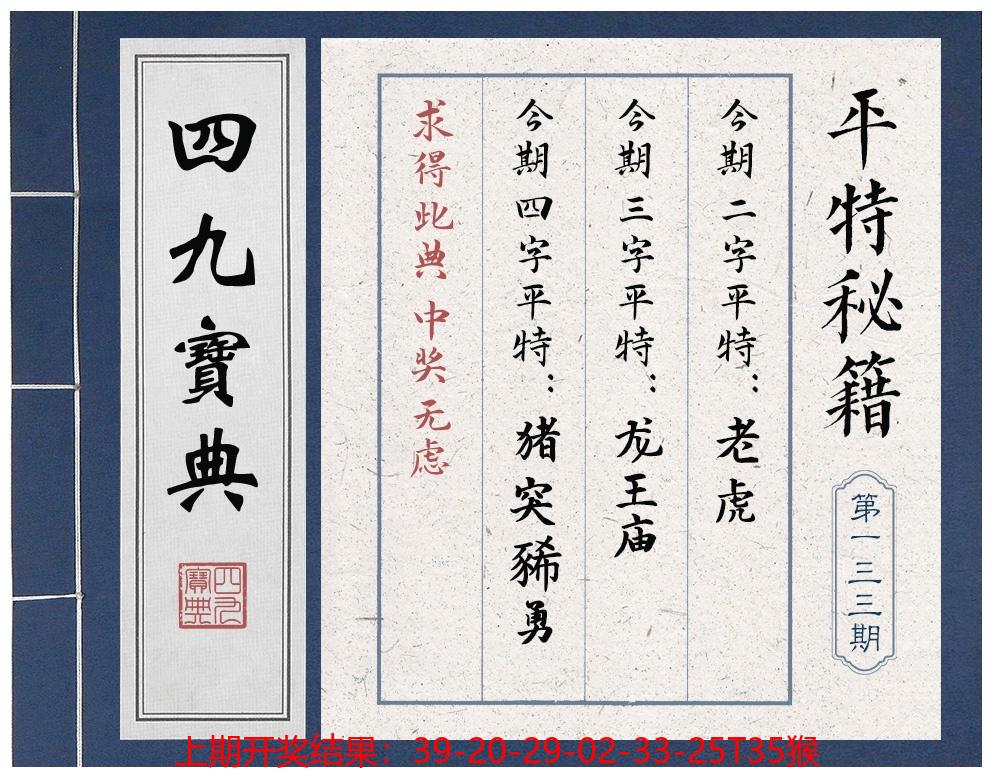 平特秘籍
第一三三期
今期二字平特：老虎
今期三字平特：龙王庙
今期四字平特：猪突豨勇
求得此典 中奖无虑
四九寶典
四九寶典
上期开奖结果：39-20-29-02-33-25T35猴